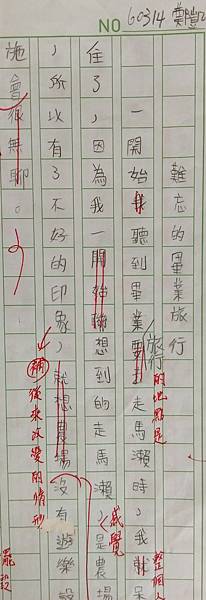 NO 60314
難忘的畢業旅行
一開始我聽到畢業要去走馬瀨時，我就呆
住了，因為我一開始聯想到的走馬瀨，是農場
，所以有了不好的印象，就想農場沒有遊樂設
施會很無聊。
旅行的地點是
整個人
感覺
補
後來改變的情形